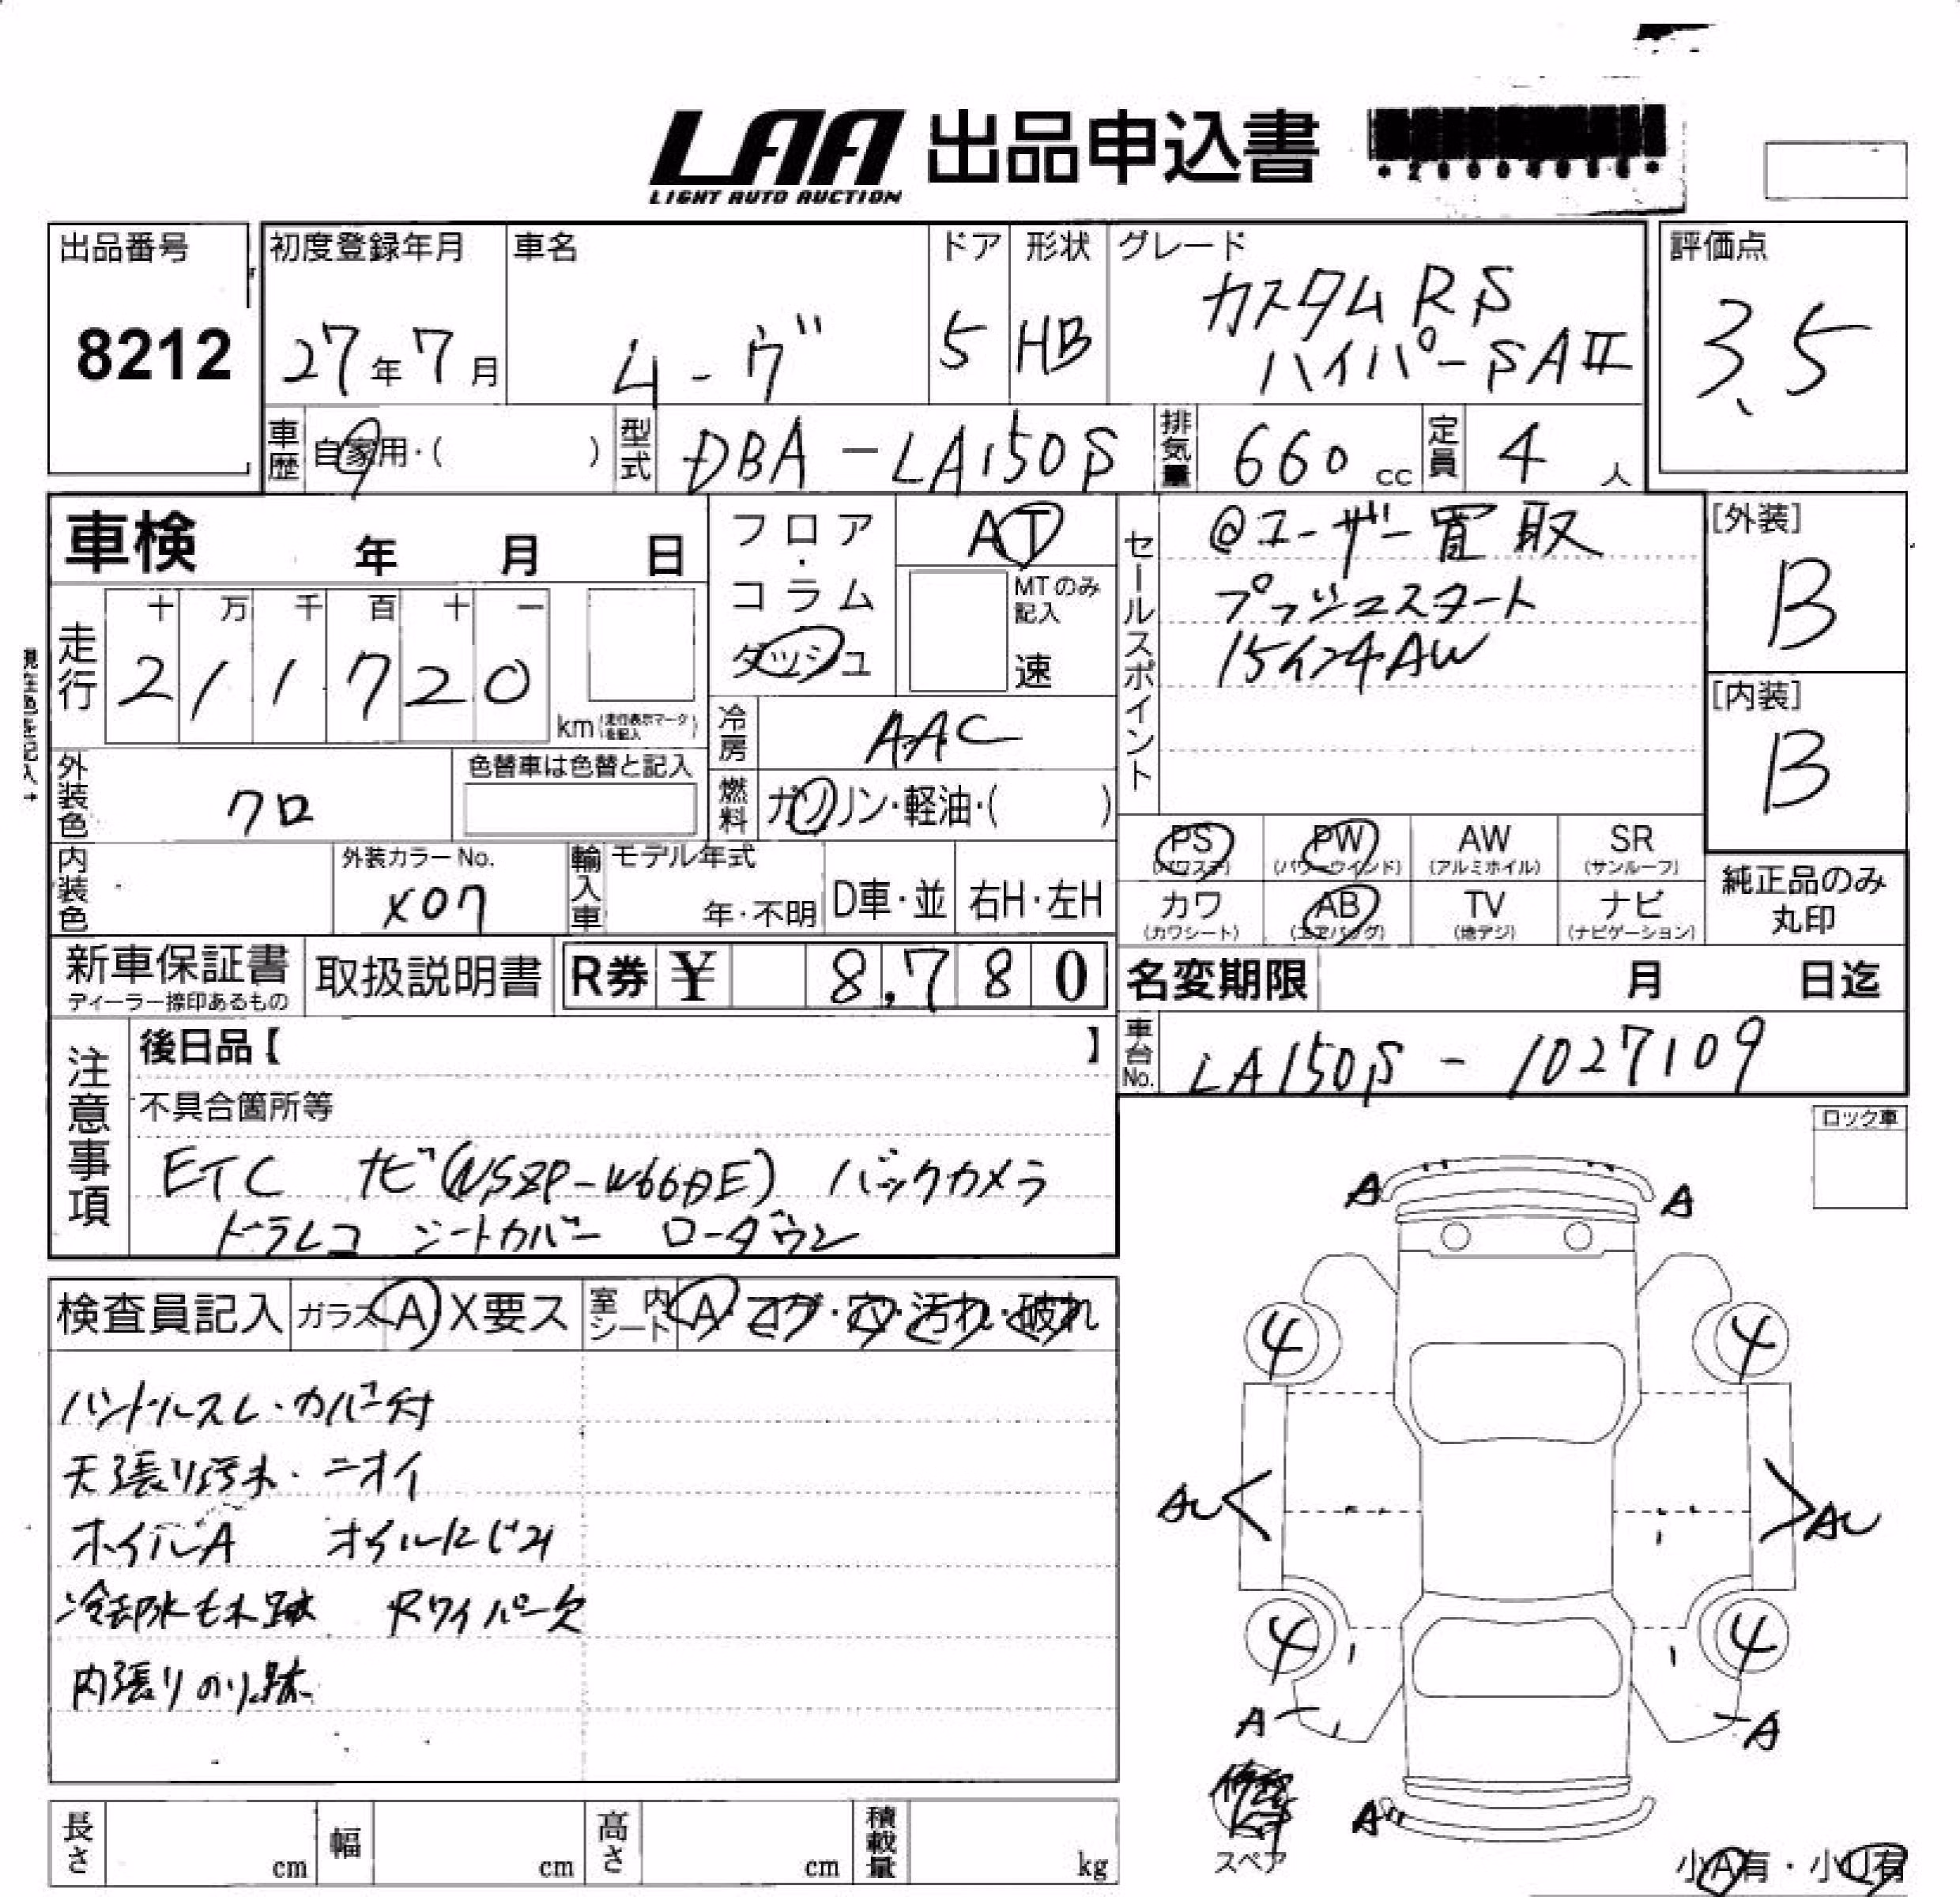 LAA 出品申込書
LIGHT AUTO AUCTION
出品番号
8212
初度登録年月
27年7月
車名
ムーヴ
ドア
5
形状
HB
グレード
カスタム RS
ハイパーSAⅡ
評価点
3.5
車歴
自家用・( )
型式
DBA-LA150S
排気量
660 cc
定員
4 人
車検 年 月 日
走行
十 万 千 百 十 一
2 1 1 7 2 0
km (走行表示マークを記入)
フロア・コラム
ダッシュ
AT
MTのみ記入
速
冷房
AAC
燃料
ガソリン・軽油・( )
セールスポイント
@ユーザー買取
プッシュスタート
15インチAW
[外装]
B
[内装]
B
外装色
クロ
色替車は色替と記入
内装色
外装カラーNo.
X07
輸入車
モデル年式
年・不明
D車・並
右H・左H
PS
(パワステ)
PW
(パワーウインド)
AW
(アルミホイル)
SR
(サンルーフ)
カワ
(カワシート)
AB
(エアバッグ)
TV
(地デジ)
ナビ
(ナビゲーション)
純正品のみ
丸印
新車保証書
ディーラー捺印あるもの
取扱説明書
R券 ¥ 8,780
名変期限 月 日迄
車台No.
LA150S-1027109
注意事項
後日品【 】
不具合箇所等
ETC ナビ(NSZP-W66DE) バックカメラ
ドラレコ シートカバー ローダウン
ロック車
検査員記入
ガラス A X要ス
室内シート A・コゲ・穴・汚れ・破れ
ハンドルスレ・カバー付
天張り汚れ・ニオイ
ホイルA オイルにじみ
冷却水もれ跡 Rワイパー欠
内張りのり跡
A A
4 4
AU AU
4 4
A A
A
スペア
小A有・小U有
長さ cm
幅 cm
高さ cm
積載量 kg